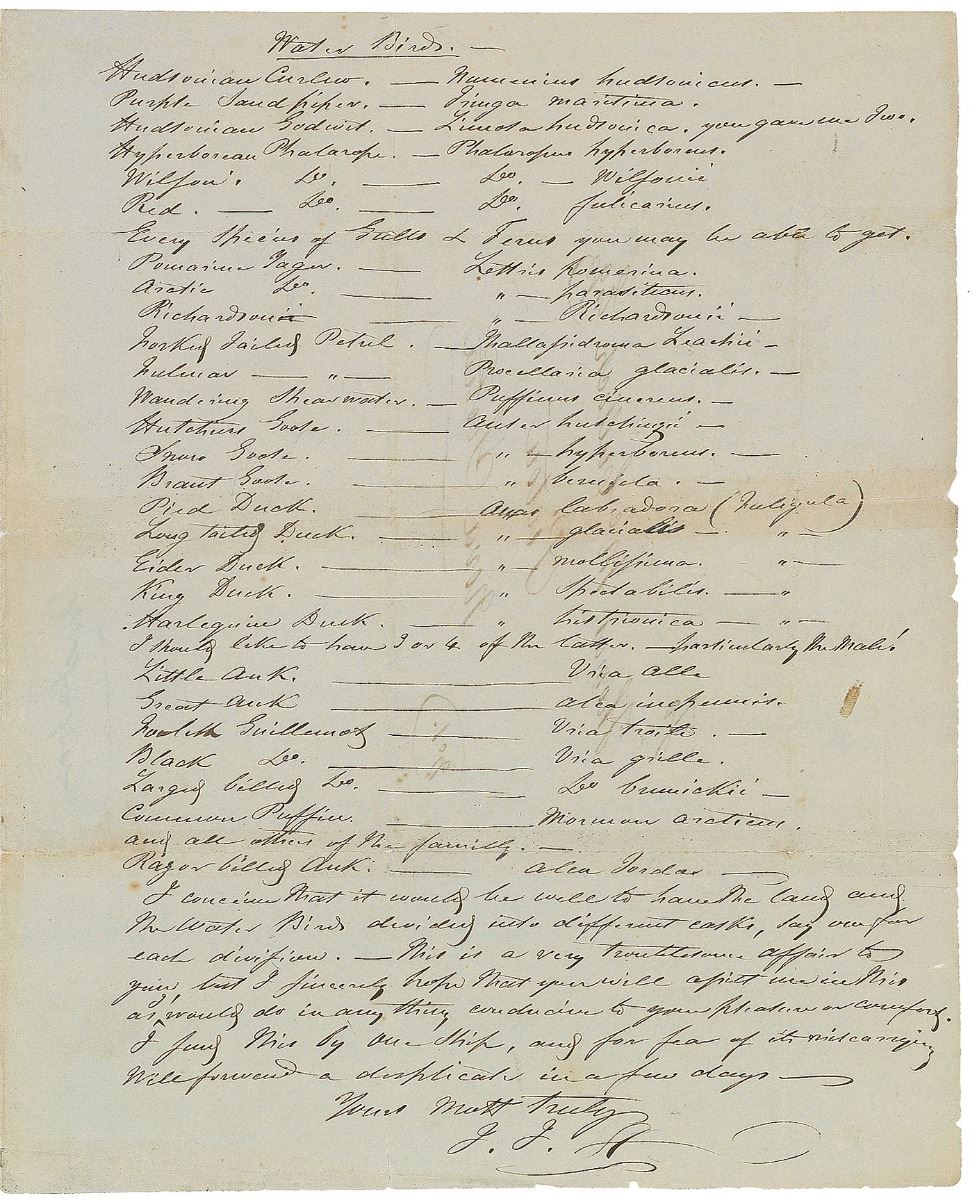 Water Birds. —
Hudsonian Curlew. — Numenius hudsonicus. —
Purple Sand piper. — Tringa maritima.
Hudsonian Godwit. — Limosa hudsonica. you gave me Two.
Hyperborean Phalarope. — Phalaropus hyperboreus.
Wilson's Do. — Do. — Wilsonii
Red. — Do. — Do. fulicarius.
Every Species of Gulls & Terns you may be able to get.
Pomarine Jager. — Lestris pomerina.
Arctic Do. — " — parasiticus.
Richardsonii — " — Richardsonii —
Forked Tailed Petrel. — Thallasidroma Leachii —
Fulmar — " — Procellaria glacialis. —
Wandering Shearwater. — Puffinus cinereus. —
Hutchins Goose. — Anser hutchinsii —
Snow Goose. — " — hyperboreus. —
Brant Goose. — " bernicla. —
Pied Duck. — Anas labradora (Fuligula)
Long tailed Duck. — " — glacialis — " —
Eider Duck. — " — mollissima. " —
King Duck. — " Spectabilis. — "
Harlequin Duck. — " histrionica — " —
I should like to have 3 or 4 of the latter. — particularly the Male!
Little Auk. — Uria Alle
Great Auk — Alca impennis.
Foolish Guillemot — Uria troile. —
Black Do. — Uria grille.
Larged billed Do. — Do brunickii —
Common Puffin. — Mormon Arcticus.
and all others of the familly. —
Razor billed Auk. — Alca Tordas —
I conceive that it would be well to have the land and
the Water Birds divided into different casks, say one for
each division. — This is a very troublesome affair to
you, but I sincerely hope that you will assist me in this
as I would do in any thing conducive to your pleasure or comfort.
I send this by one Ship, and for fear of its miscarrying
Will forward a duplicate in a few days —
Yours Most truly
J. J. A